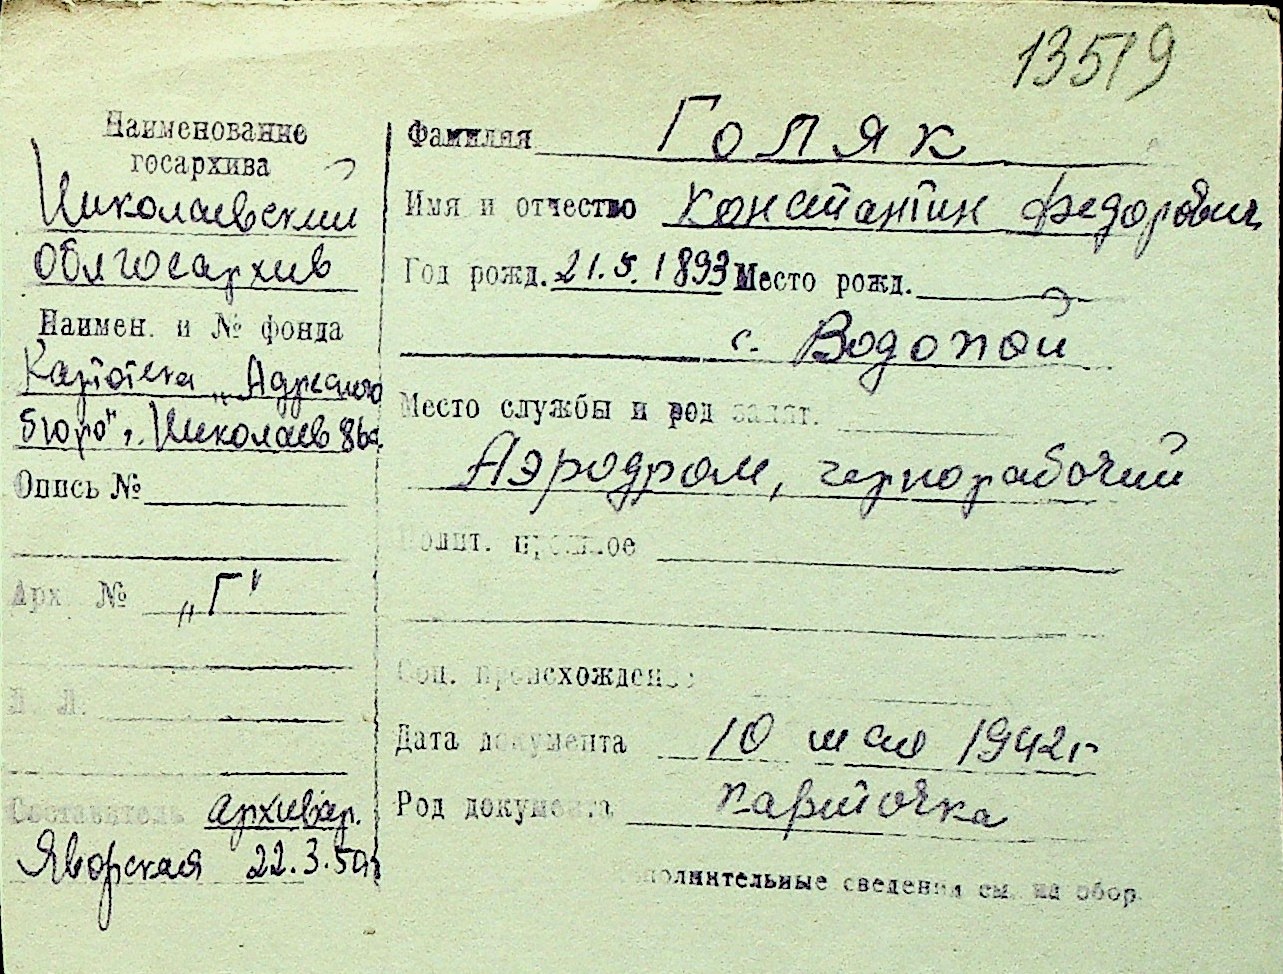 13519
Наименование
госархива
Николаевский
Облгосархив
Наимен. и № фонда
Картотека „Адресного
бюро", г. Николаев
Опись №
Арх. № „Г"
Л. Л.
Составитель архивар.
Яворская 22.3.50г
Фамилия Голяк
Имя и отчество Константин Федорович
Год рожд. 21.5.1893 Место рожд.
с. Водопой
Место службы и род занят.
Аэродром, чернорабочий
Полит. прошлое
Соц. происхождение
Дата документа 10 мая 1942г
Род документа карточка
Дополнительные сведения см. на обор.